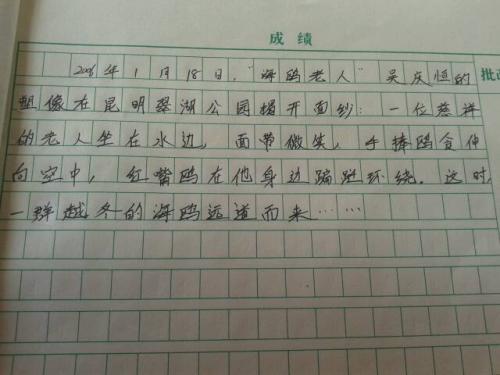 成绩
批
2006年1月18日，“海鸥老人”吴庆恒的
塑像在昆明翠湖公园揭开面纱：一位慈祥
的老人坐在水边，面带微笑，手捧鸥食伸
向空中，红嘴鸥在他身边蹁跹环绕。这时，
一群越冬的海鸥远道而来……